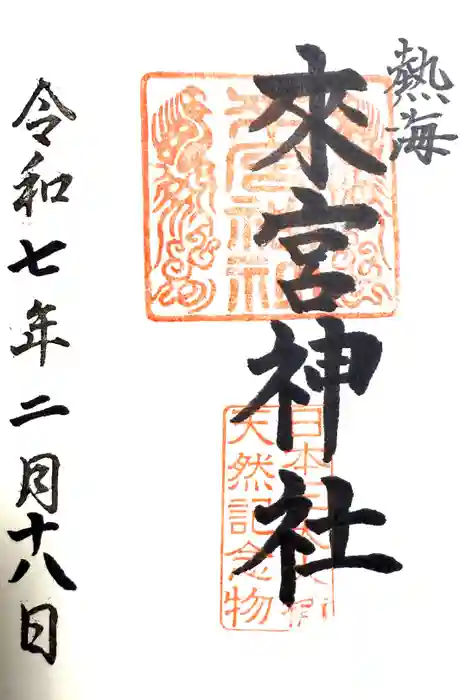 熱海
來宮神社
天然記念物
令和七年二月十八日